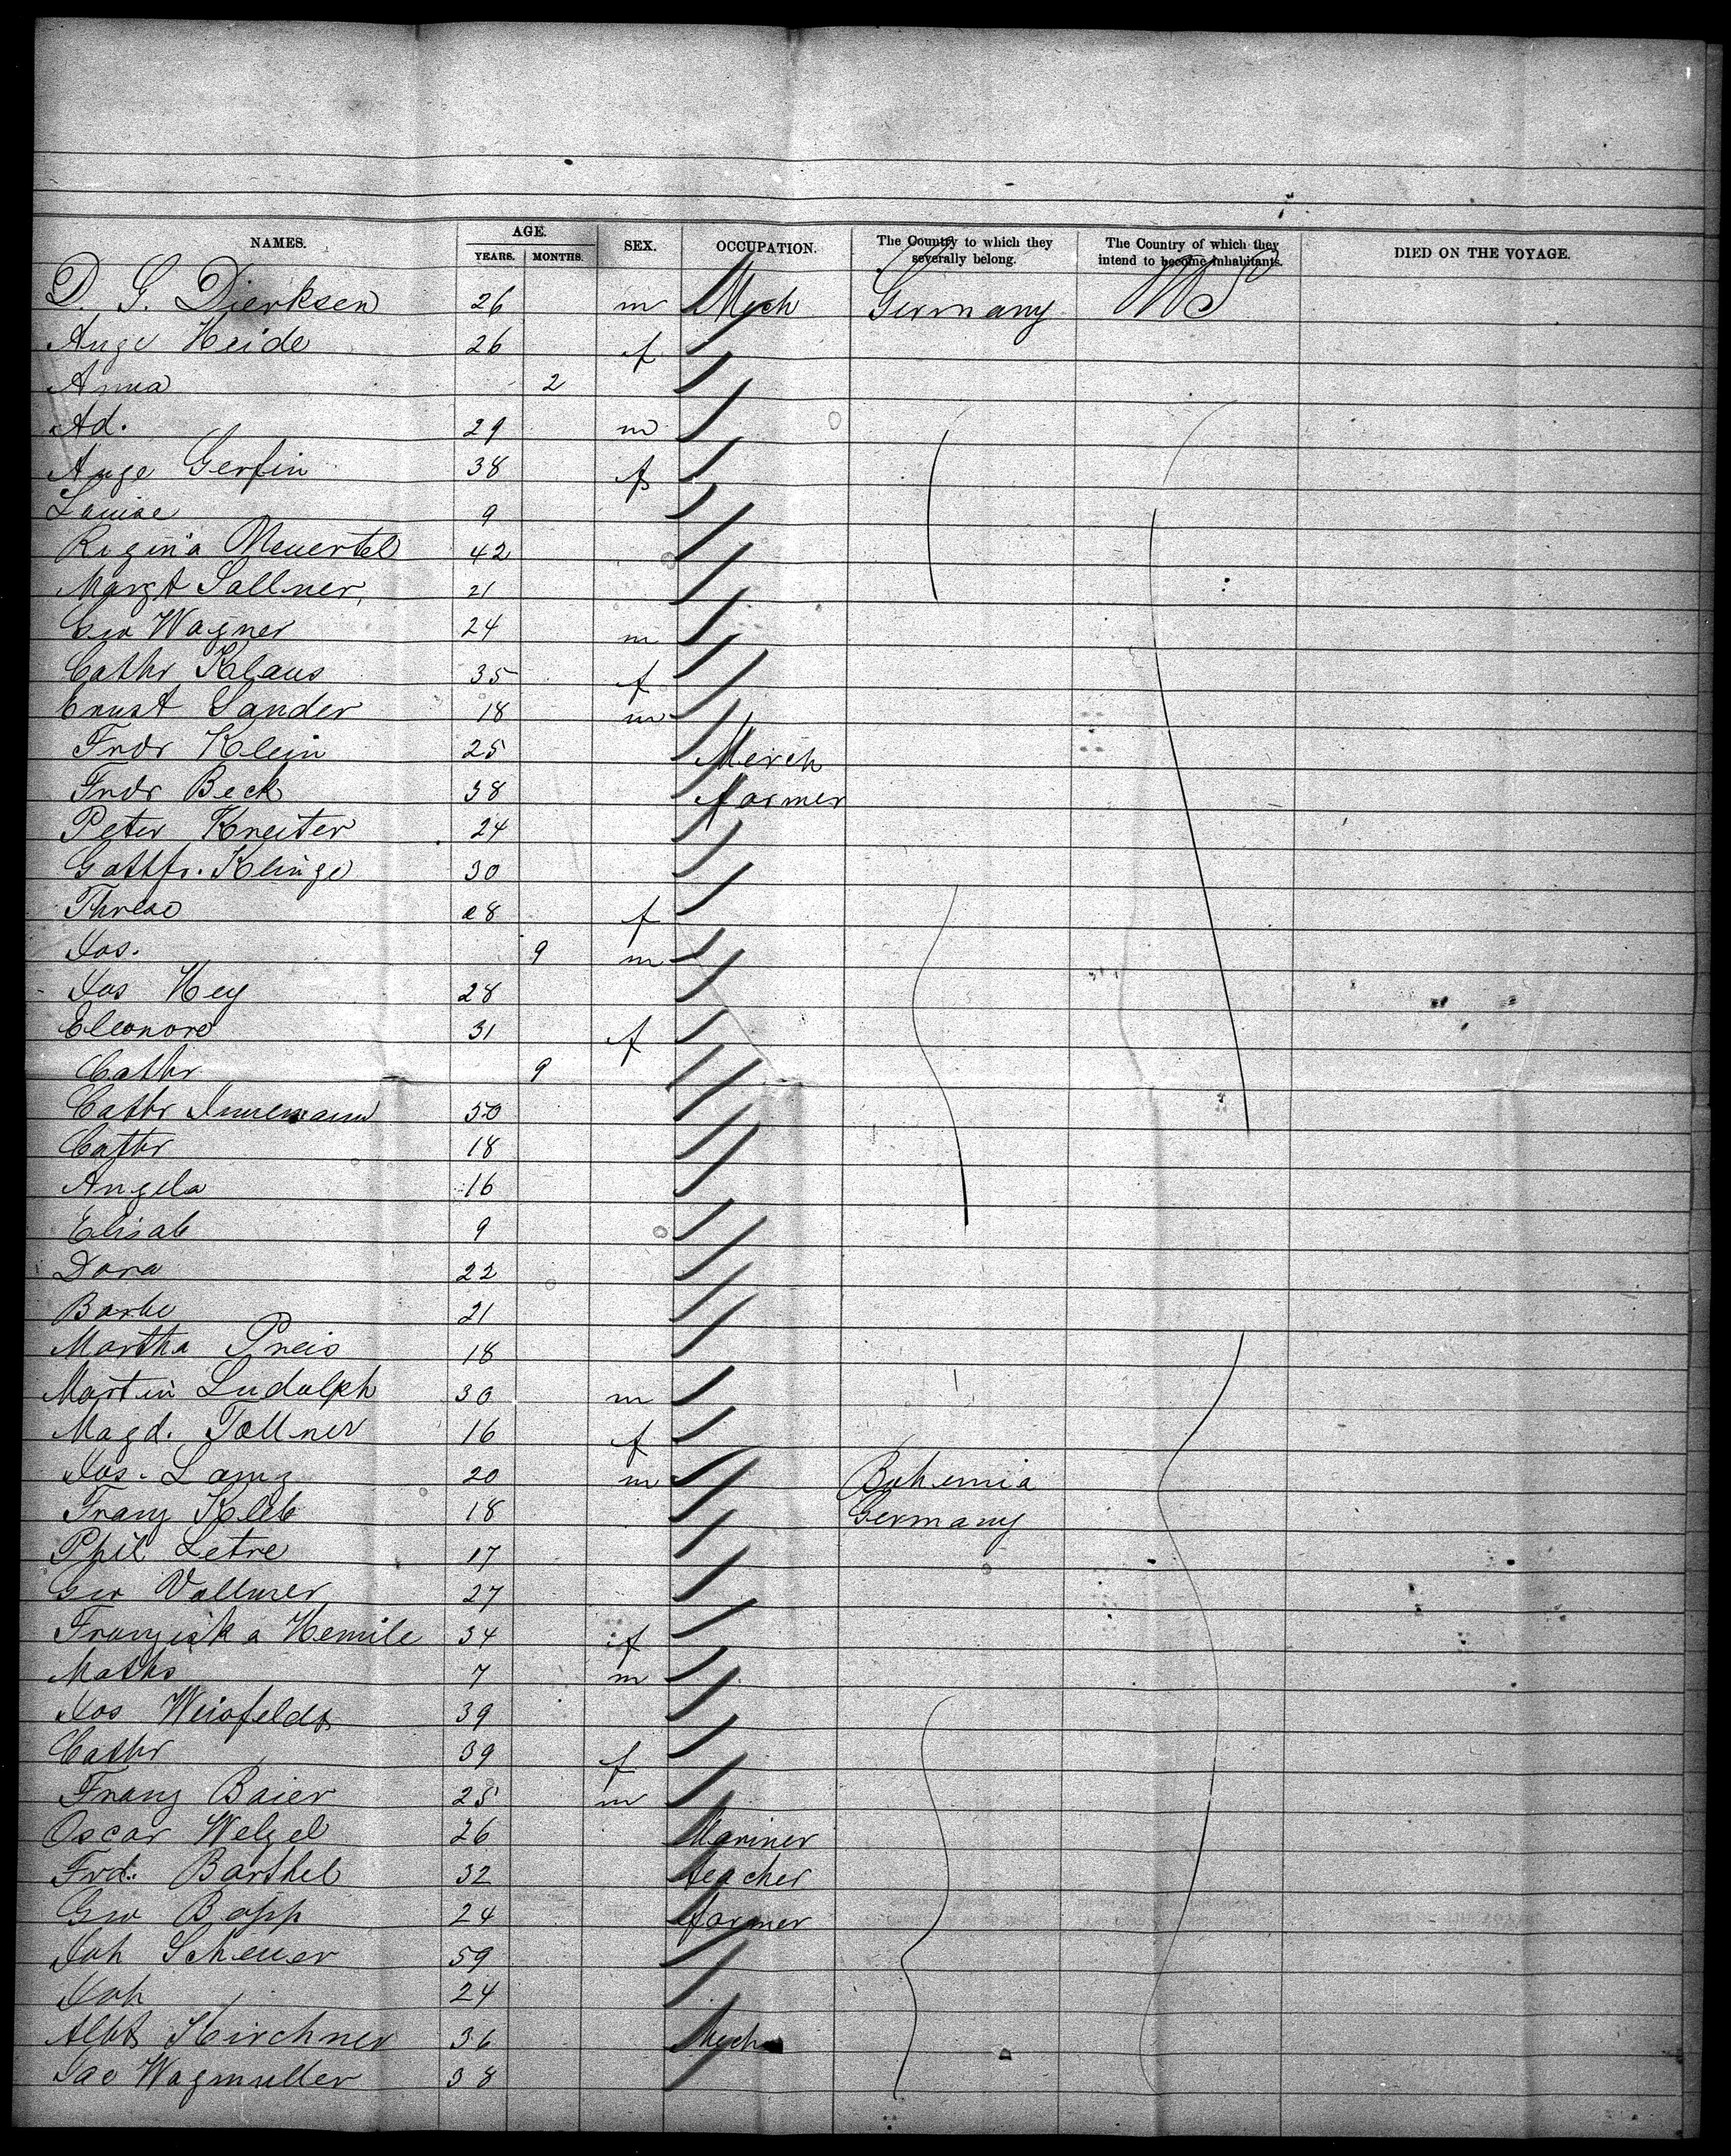 NAMES. AGE. SEX. OCCUPATION. The Country to which they severally belong. The Country of which they intend to become inhabitants. DIED ON THE VOYAGE.
YEARS. MONTHS.
D. G. Dierksen 26 m Mech Germany US
Auge Heide 26 f
Anna 2
Ad. 29 m
Auge Gerfin 38 f
Louise 9
Regina Meuertel 42
Margt Sallner 21
Geo Wagner 24 m
Cathr Klaus 35 f
Ernst Sander 18 m
Fredr Klein 25 Merch
Fredr Beck 38 farmer
Peter Kreiter 24
Gottfr. Klinge 30
Threse 28 f
Jos. 9 m
Jos Hey 28
Eleonore 31 f
Cathr 9
Cathr 50
Cathr 18
Angela 16
Elisab 9
Dora 22
Barbe 21
Martha Preis 18
Martin Ludolph 30 m
Magd. Tollner 16 f
Jos. Lanz 20 m Bohemia
Franz Kleb 18 Germany
Phil Letre 17
Geo Vollmer 27
Franziska Hemile 34 f
Maths 7 m
Jos Weisfeldt 39
Cathr 39 f
Franz Baier 25 m
Oscar Welzel 26 Mariner
Frd. Barthel 32 teacher
Geo Bopp 24 farmer
Joh Scheuer 59
Joh 24
Albt Kirchner 36 Mech
Jac Wagmuller 38